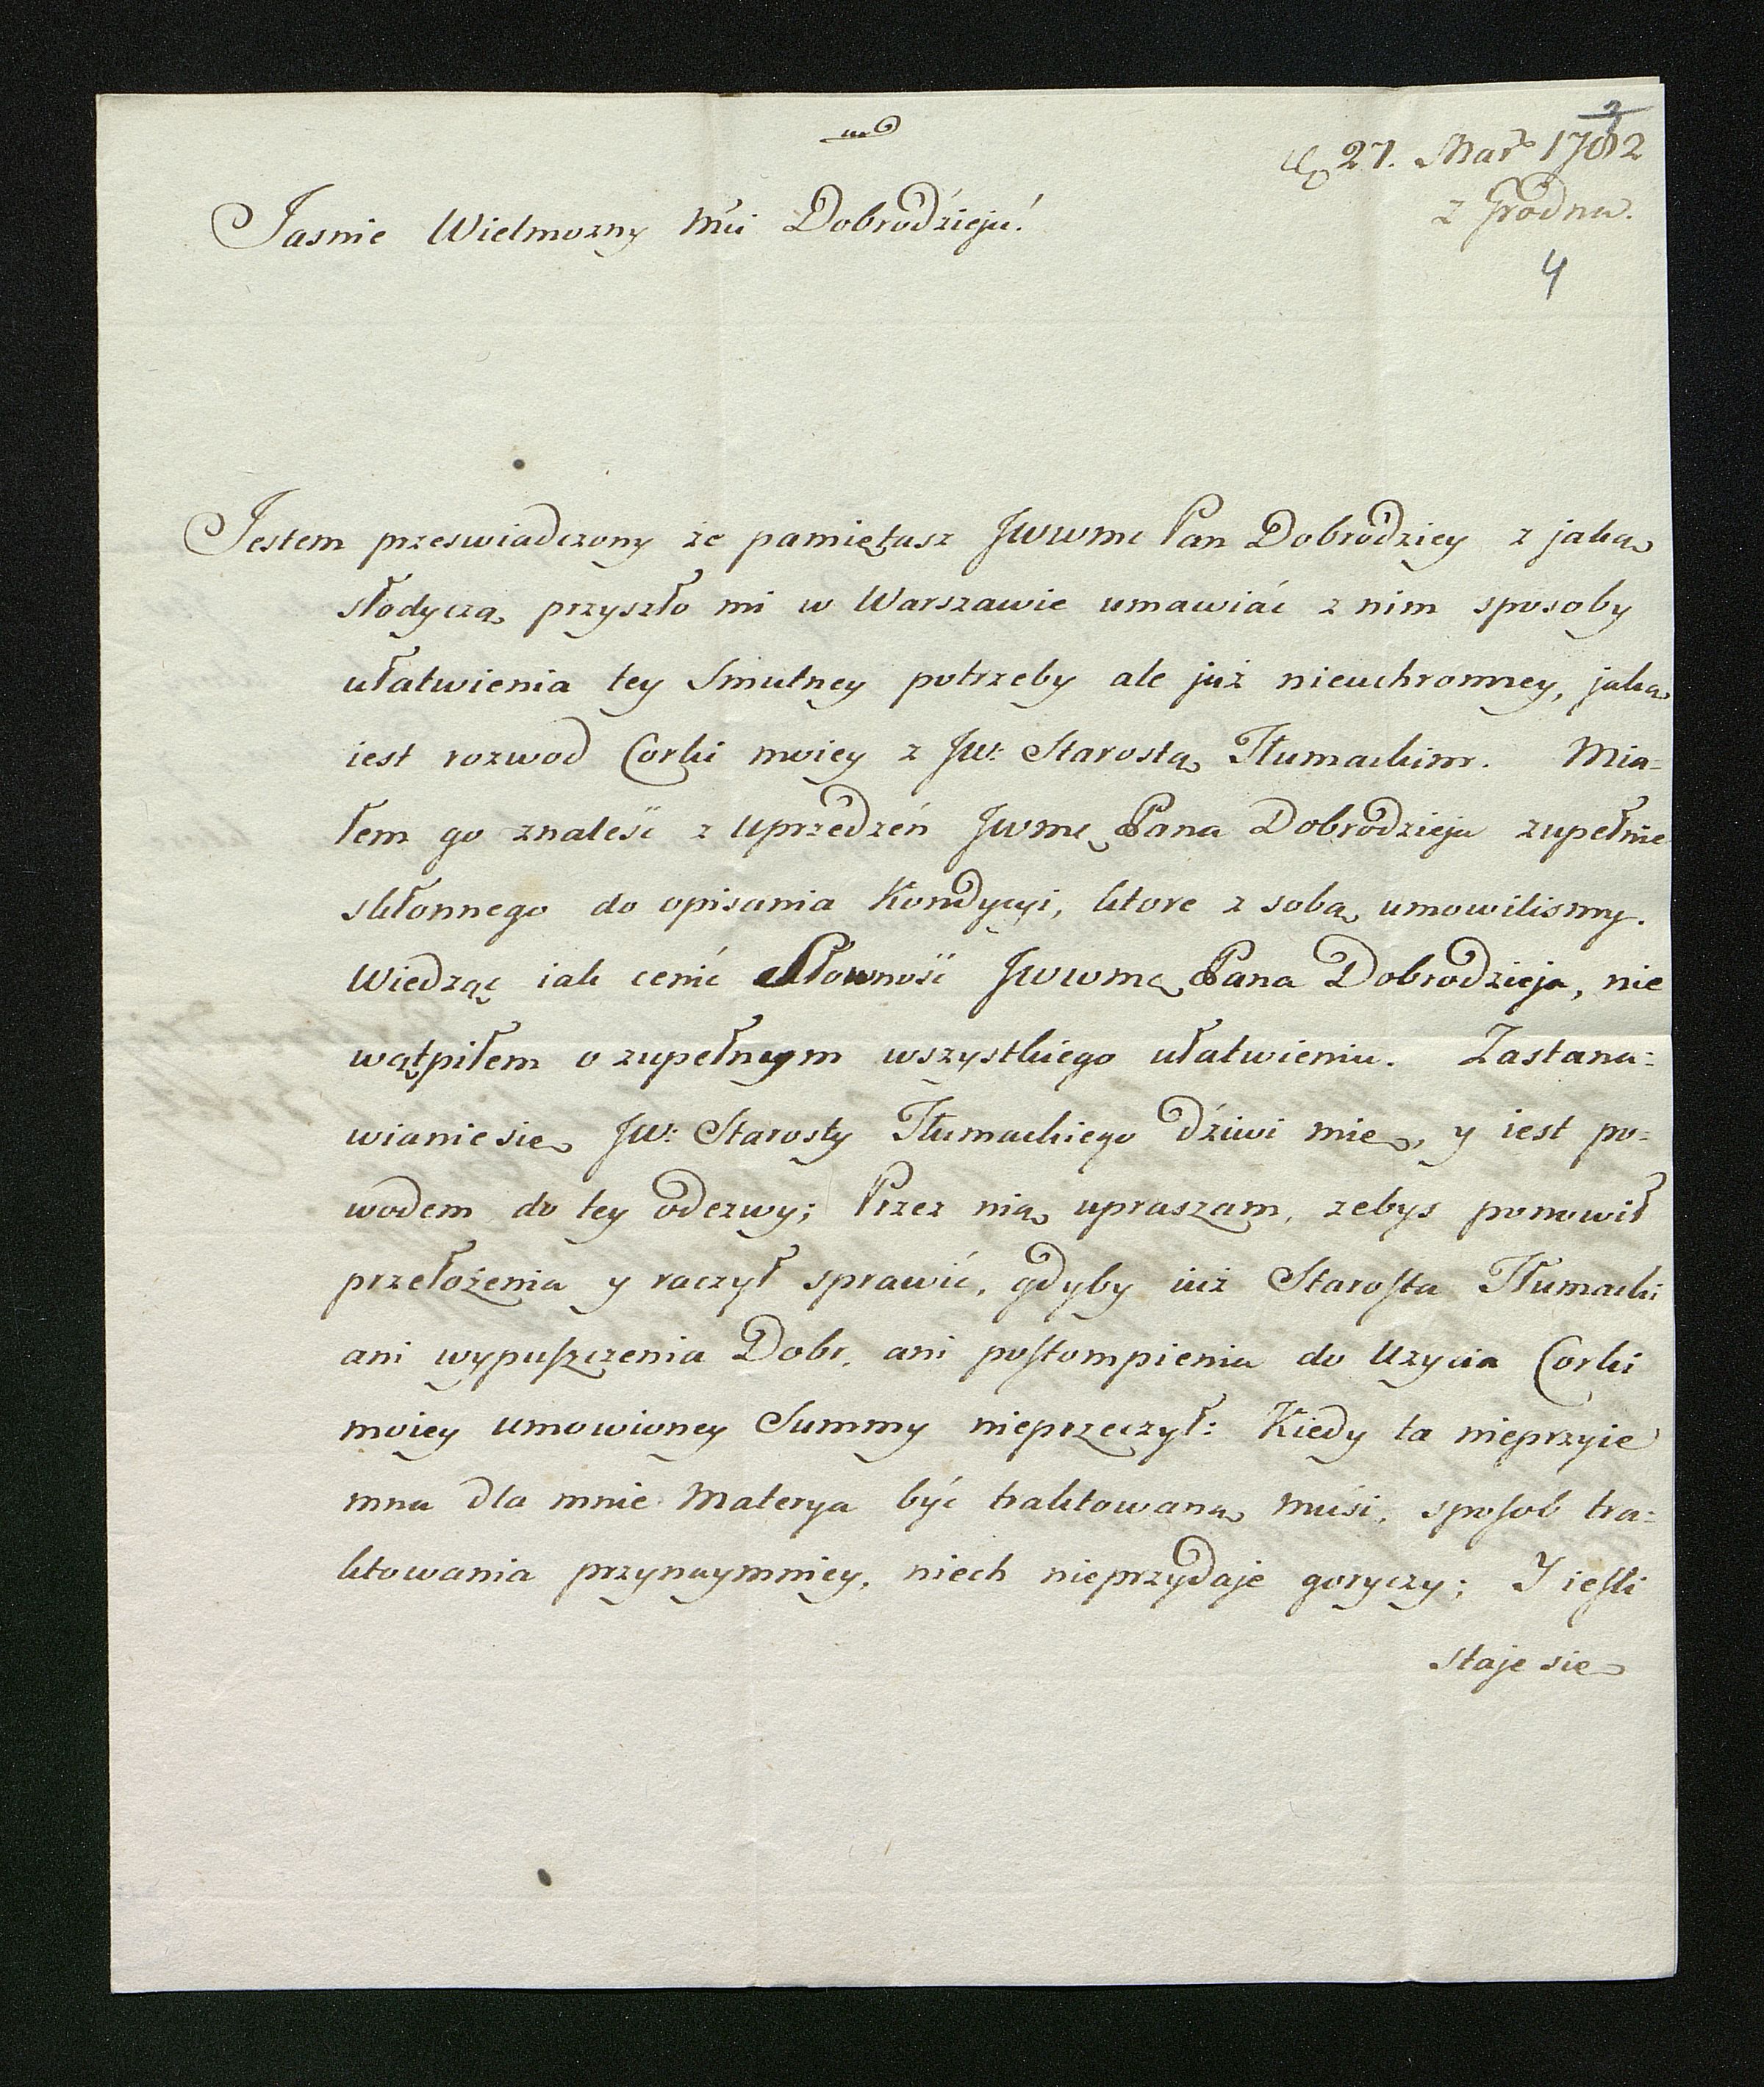 27. Mar. 1782
z Grodna.
4
Jasnie Wielmozny Mći Dobrodźieju!
Jestem przeswiadczony że pamiętasz JWWMć Pan Dobrodziey z jaką
słodyczą przyszło mi w Warszawie umawiáć z nim sposoby
ułatwienia tey Smutney potrzeby ale już nieuchronney, jaką
iest rozwod Corki moiey z JW: Starostą Tłumackim. Mia=
łem go znaleść z uprzedzeń JWMć Pana Dobrodzieja zupełnie
skłonnego do opisania Kondycyi, ktore z sobą umowilismy.
Wiedząc iak cenić Słowność JWWMć Pana Dobrodzieja, nie
wątpiłem o zupełnym wszystkiego ułatwieniu. Zastana=
wianie się JW: Starosty Tłumackiego dźiwi mię, y iest po=
wodem do tey odezwy; Przez nią upraszam, zebys ponowił
przełożenia y raczył sprawić, gdyby iuż Starosta Tłumacki
ani wypuszczenia Dobr, ani postompienia do Uzycia Corki
moiey umowioney Summy nieprzeczył: Kiedy ta nieprzyie
mna dla mnie Materya być traktowaną muśi, sposob tra=
ktowania przynaymniey, niech nieprzydaje goryczy; Y iesli
staje się